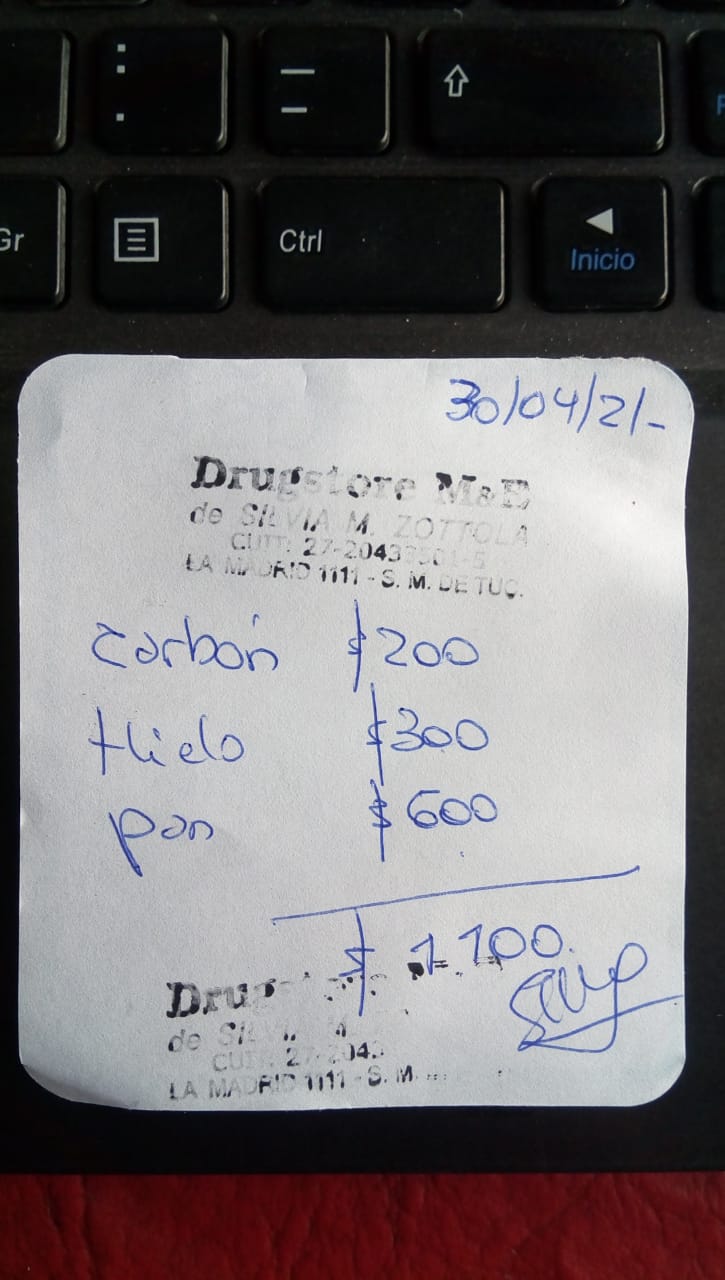 : .
Gr
Ctrl
Inicio
30/04/21-
Drugstore M&E
de SILVIA M. ZOTTOLA
CUIT: 27-20433501-5
LA MADRID 1111 - S. M. DE TUC.
carbón $200
Hielo $300
pan $600
$ 1100.
Drug
de SILVIA M.
CUIT: 27-2043
LA MADRID 1111 - S. M.